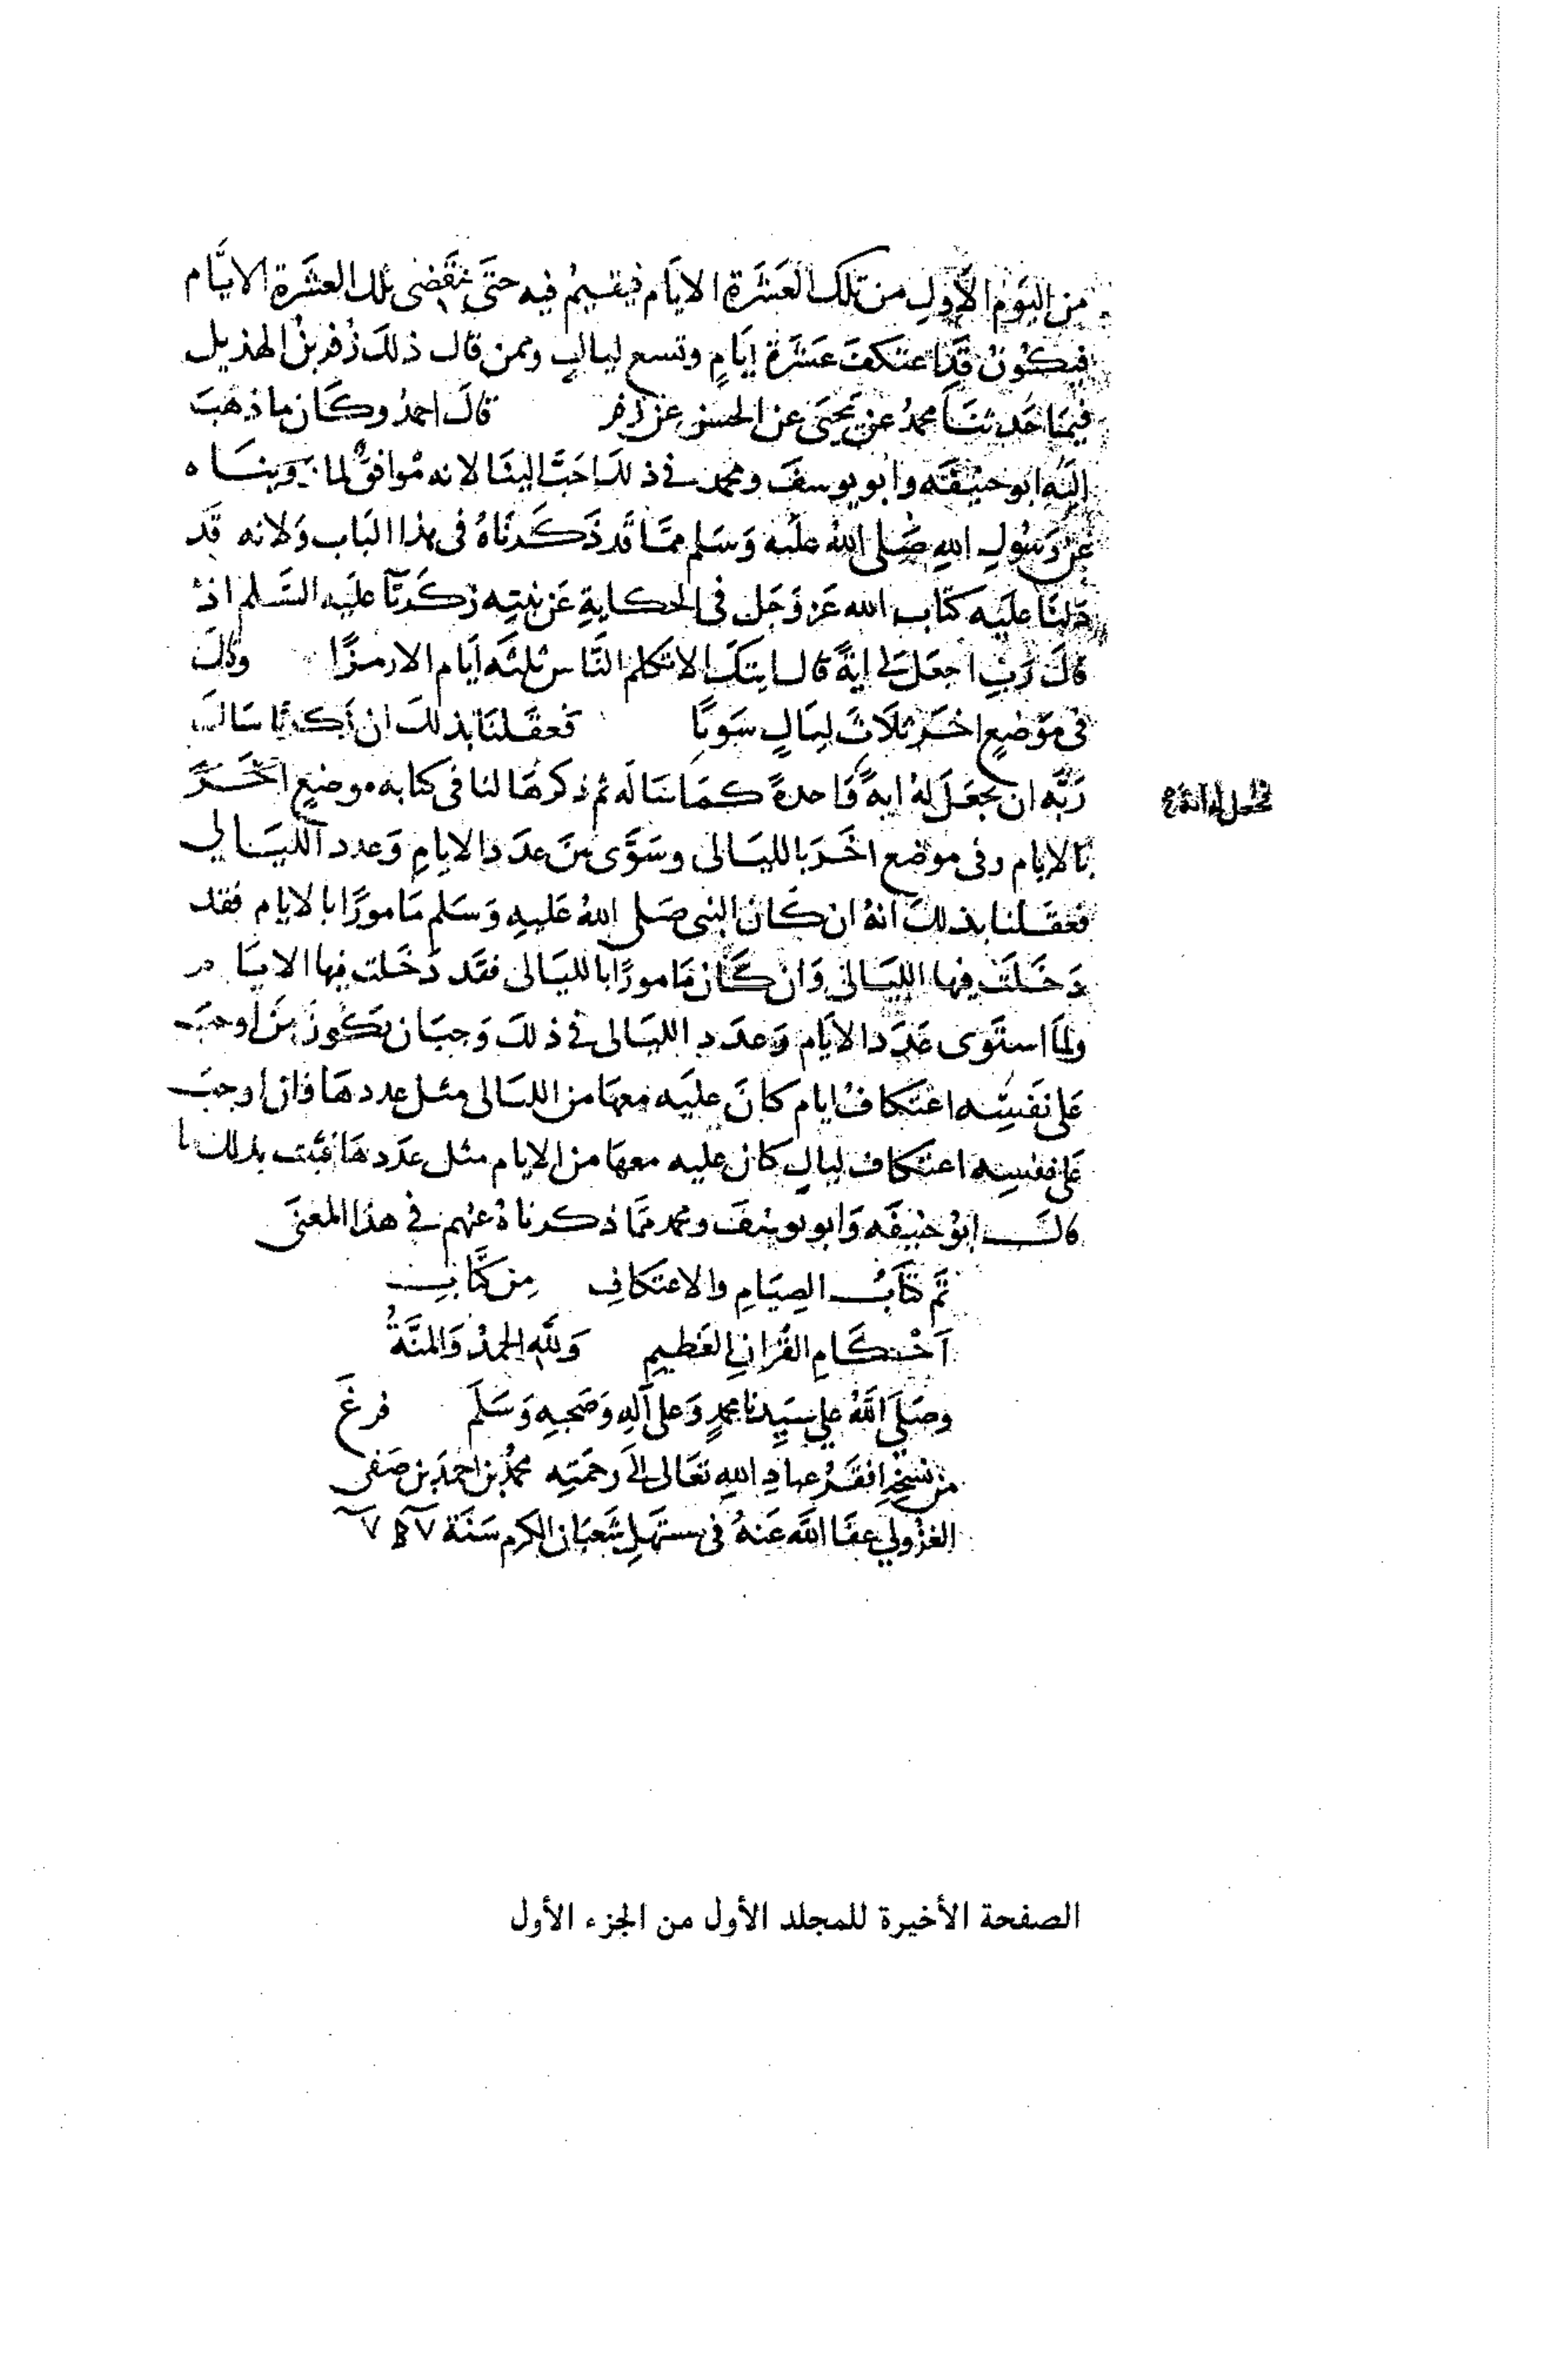 من اليَوم الأولِ من تلكَ العَشَرَة الايَام فيقيمُ فيه حتَى تنقَضى تلك العشَرة الايَّام
فيكُونُ قَد اعتكفَ عَشَرَة ايَامٍ وتسع ليالٍ وممن قال ذلكَ زُفر بنُ الهذيل
فيمَا حَدثنَا محمدُ عن يَحيَى عن الحسن عن زفر قالَ احمدُ وكَان ما ذهبَ
اليَه ابو حنيفَه وابو يوسفَ ومحمد في ذلكَ احَبَّ الينَا لانه مُوافقٌ لما رَوينَاه
عن رَسُولِ اللهِ صَلى اللهُ عليْه وَسَلم ممَّا قَد ذَكَرنَاهُ فى هذا البَاب وَلانه قَد
دَلنَا عليَه كتَاب الله عَز وَجَل فى الحكايةِ عَن نبيّه زكَريَّا عليَه السَّلم اذْ
قالَ رَبِ اجعَل لي ايةً قال ايتكَ الا تكلم النَّاس ثلثَه اَيام الا رمزًا وقالَ
فى مَوْضعٍ اخَر ثلَاثَ ليَالٍ سَويًا فعقَلنَا بذلكَ ان زَكريَّا سَالَ
رَبَّه ان يجعَلَ لهُ ايةً وَاحدةً كمَا سَاله ثم ذكرهَا لنا فى كتابه موضعٍ اخَر
بالايام وفى موضع اخَرَ بالليَالى وسَوَّى بيَنَ عدَد الايامِ وَعدد الليَالي
فعقَلنا بذلكَ انهُ ان كَان النبى صَلى اللهُ عَليهِ وَسَلم مَامورًا بالايام فقد
دَخَلتْ فيها الليَالى وَان كَان مَامورًا بالليَالى فقَد دَخَلت فيها الايَام
ولمَا استَوى عَدَد الايَام وَعدَد الليَالى في ذلكَ وَجبَ ان يَكونَ مَن اوجبَ
عَلى نَفسِه اعتكافُ ايام كانَ عليَه معهَا من الليَالى مثل عددهَا فان اوجبَ
عَلى نفسِه اعتكاف ليالٍ كان عليه معهَا من الايام مثل عدَدهَا فثبت بذلك ما
قالَ ابوُ حنيفَه وَابو يوسُفَ ومحمد ممَّا ذكرنَاهُ عنهم في هذا المعنَى
تَم كتَابُ الصِيَامِ والاعتكافِ مِن كتَابِ
اَحْكَامِ القُرانِ العَظيمِ وَللهِ الحمدُ وَالمنَّةُ
وصَلَى اللَّهُ علي سَيِّدنا محمدٍ وَعلى آلهِ وَصَحبِهِ وَسَلَمَ فرغَ
من نسخِه افقَرُ عبادِ اللهِ تعَالى الَى رحمَتِه محمَّدُ بن احمدَ بن صَفى
الغزُولي عفَا اللَّه عَنهُ فى مستهَلِ شَعبَان المكرم سَنَة
الصفحة الأخيرة للمجلد الأول من الجزء الأول